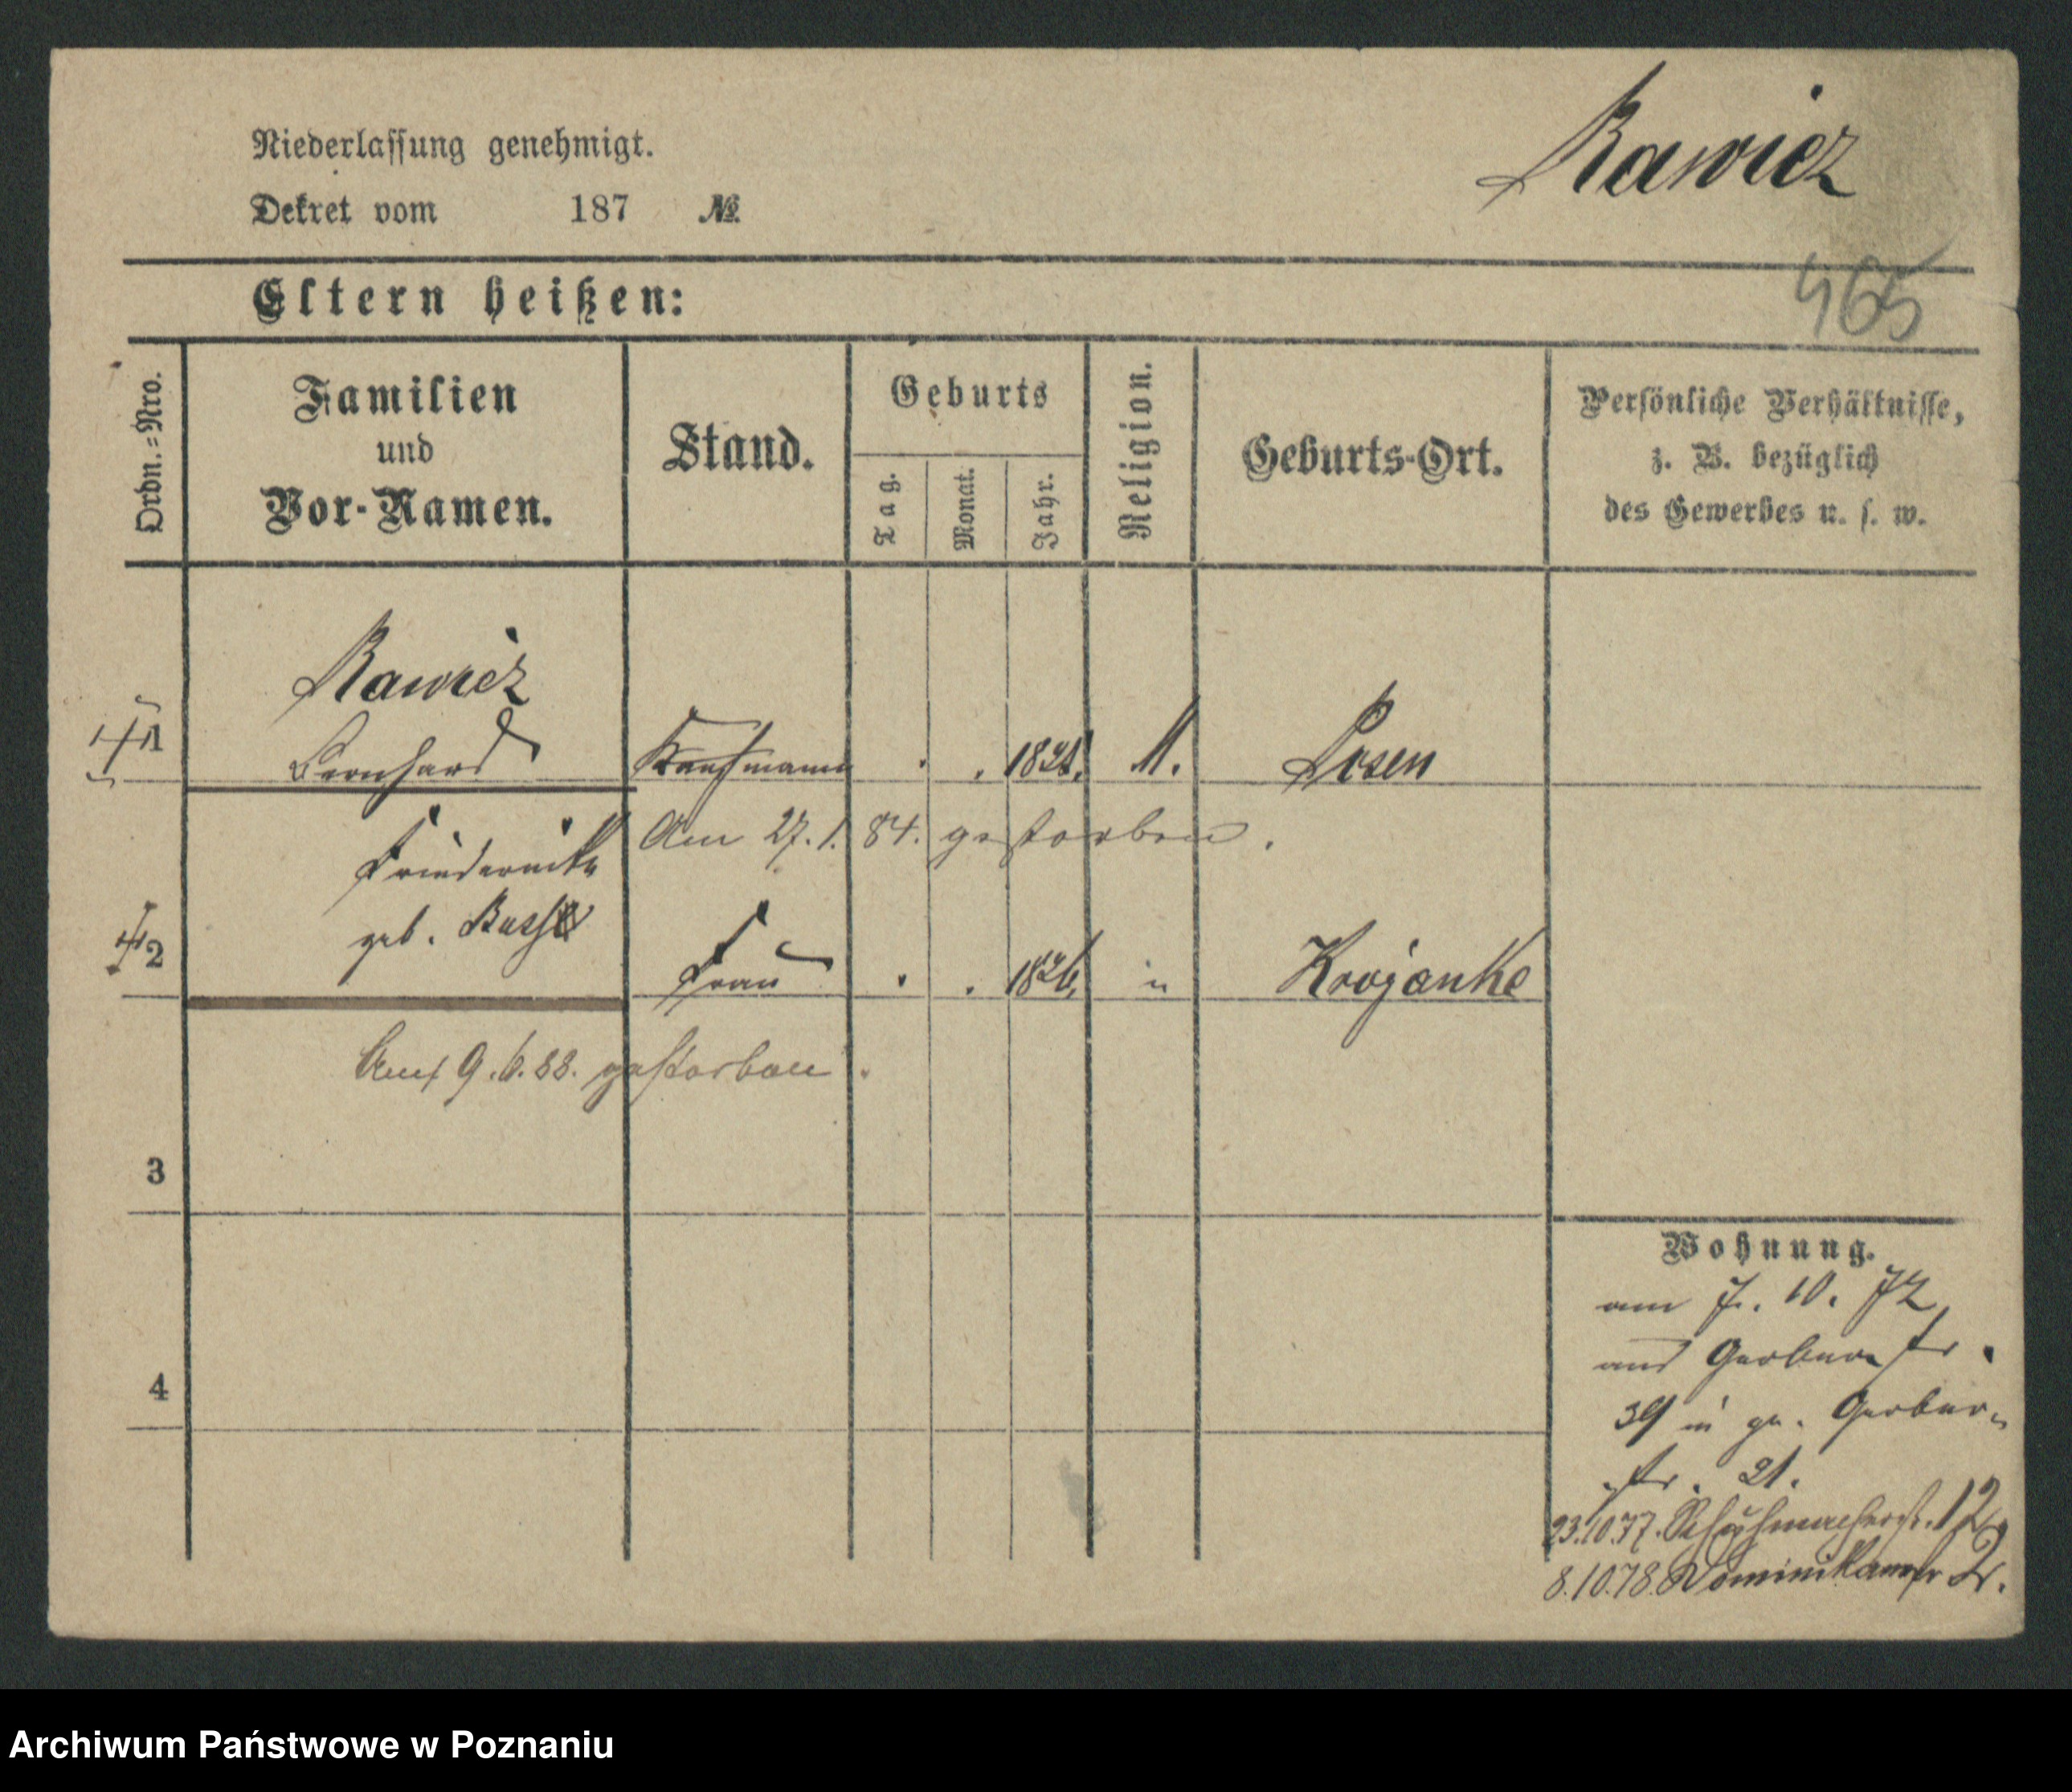 Rawicz
Niederlassung genehmigt.
Dekret vom 187 №
465
Eltern heißen:
Ordn.-Nro.
Familien
und
Vor-Namen.
Stand.
Geburts
Tag.
Monat.
Jahr.
Religion.
Geburts-Ort.
Persönliche Verhältnisse,
z. B. bezüglich
des Gewerbes u. s. w.
Rawicz
1 Bernhard Kaufmann . . M. Posen
Am 27. 1. 84. gestorben.
Friedericke
geb.
2 Frau . . 1826. " Krojanke
Am 9. 6. 88. gestorben.
3
4
Wohnung.
am 7. 10. 72
aus Gerberstr.
39 in gr. Gerber-
str. 21.
23.10.77. Schuhmacherstr. 12
8.10.78. Dominikanerstr 2.
Archiwum Państwowe w Poznaniu